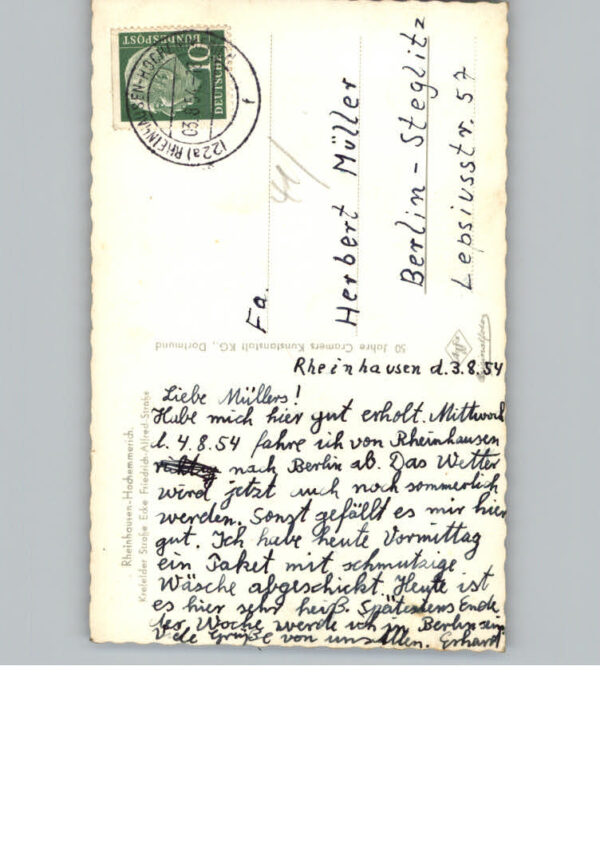 DEUTSCHE
BUNDESPOST
10
(22a) RHEINHAUSEN-HOCH
03.8.54
f
Fa.
Herbert Müller
Berlin-Steglitz
Lepsiusstr. 57
50 Jahre Cramers Kunstanstalt KG., Dortmund
Agfa
Rheinhausen-Hochemmerich.
Krefelder Straße Ecke Friedrich-Alfred-Straße
Rheinhausen d. 3.8.54
Liebe Müllers!
Habe mich hier gut erholt. Mittwoch
d. 4.8.54 fahre ich von Rheinhausen
nach Berlin ab. Das Wetter
wird jetzt auch noch sommerlich
werden. Sonst gefällt es mir hier
gut. Ich habe heute Vormittag
ein Paket mit schmutzige
Wäsche abgeschickt. Heute ist
es hier sehr heiß. Spätestens Ende
der Woche werde ich in Berlin sein.
Viele Grüße von uns Allen. Erhard